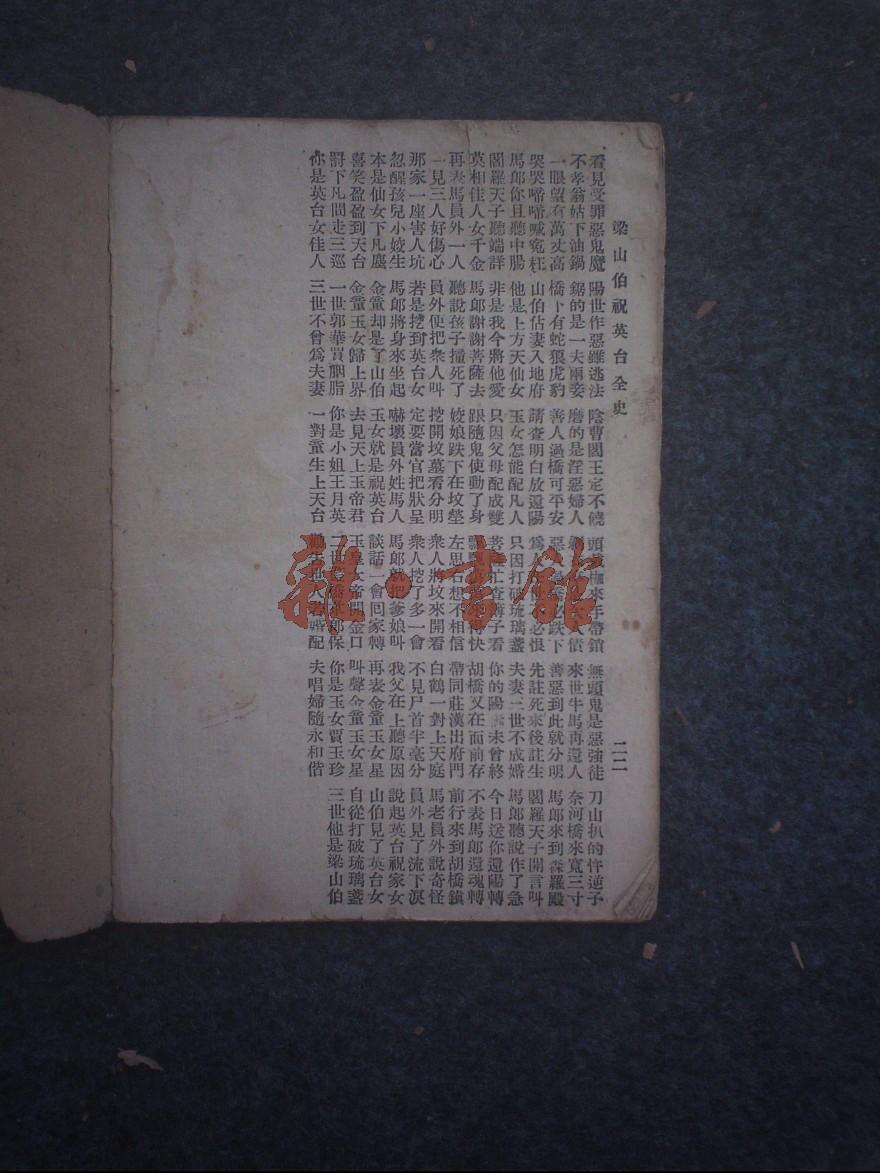 梁山伯祝英台全史 二二
看見受罪惡鬼魔 陽世作惡雖逃法 陰曹閻王定不饒 頭戴枷來手帶鎖 無頭鬼是惡強徒 刀山扒的忤逆子
不孝翁姑下油鍋 鋸的是一夫兩妾 磨的是淫惡婦人 債 來世牛馬再還人 奈河橋來寬三寸
一眼望有萬丈高 橋下有蛇狼虎豹 善人過橋可平安 惡 跌下 善惡到此就分明 馬郎來到森羅殿
哭哭啼啼喊冤枉 山伯佔妻入地府 請查明白放還陽 爲 不必恨 先註死來後註生 閻羅天子開言叫
馬郎你且聽中腸 他是上方天仙女 玉女怎能配凡人 只因打破琉璃盞 夫妻三世不成婚 馬郎聽說作了急
閻羅天子聽端詳 非是我今將他愛 只因父母配成雙 菩薩忙查簿子看 你的陽 未曾終 今日送你還陽轉
英相佳人女千金 馬郎謝謝菩薩去 跟隨鬼使動了身 得快 胡橋又在面前存 不表馬郎還魂轉
再表馬員外一人 聽說孩子撞死了 姣娘跌下在坟塋 左思右想不相信 帶同莊漢出府門 前行來到胡橋鎮
一見三人好傷心 員外便把衆人叫 挖開坟墓看分明 衆人將坟來開看 白鶴一對上天庭 馬老員外說奇怪
那家一座害人坑 若是挖到英台女 定要當官把狀呈 衆人挖了多一會 不見尸首半毫分 員外見了流下淚
忽醒孩兒小姣生 馬郎將身來坐起 嚇壞員外姓馬人 馬郎就把爹娘叫 我父在上聽原因 說起英台祝家女
本是仙女下凡塵 金童却是了山伯 玉女就是祝英台 談話一會回家轉 再表金童玉女星 山伯見了英台女
喜笑盈盈到天台 金童玉女歸上界 去見天上玉帝君 玉皇大帝開金口 叫聲金童玉女星 自從打破琉璃盞
罸下凡間走三巡 一世郭華買胭脂 你是小姐王月英 二世 橋 郎保 你是玉女賈玉珍 三世他是梁山伯
你是英台女佳人 三世不曾爲夫妻 一對童生上天台 婚配 夫唱婦隨永和偕
雜·书館